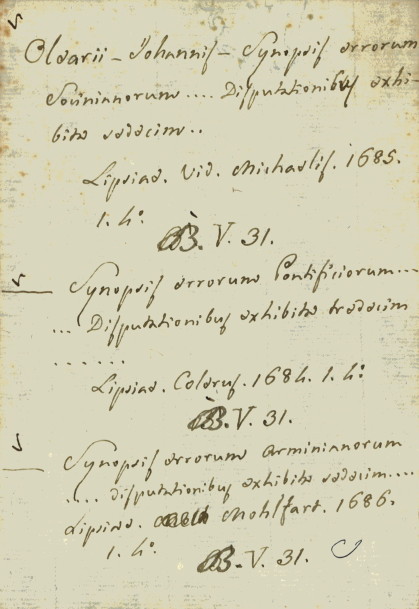 Olearii - Johannis - Synopsis errorum
Socinianorum .... Disputationibus exhi-
bita sedecim ..
Lipsiae. Vid. Michaelis. 1685.
1. 4º.
B. V. 31.
Synopsis errorum Pontificiorum ...
... Disputationibus exhibita tredecim
......
Lipsiae. Colerus. 1684. 1. 4º
B. V. 31.
Synopsis errorum Arminianorum
.... disputationibus exhibita sedecim ....
Lipsiae. Mohlfart. 1686.
1. 4º. B. V. 31.